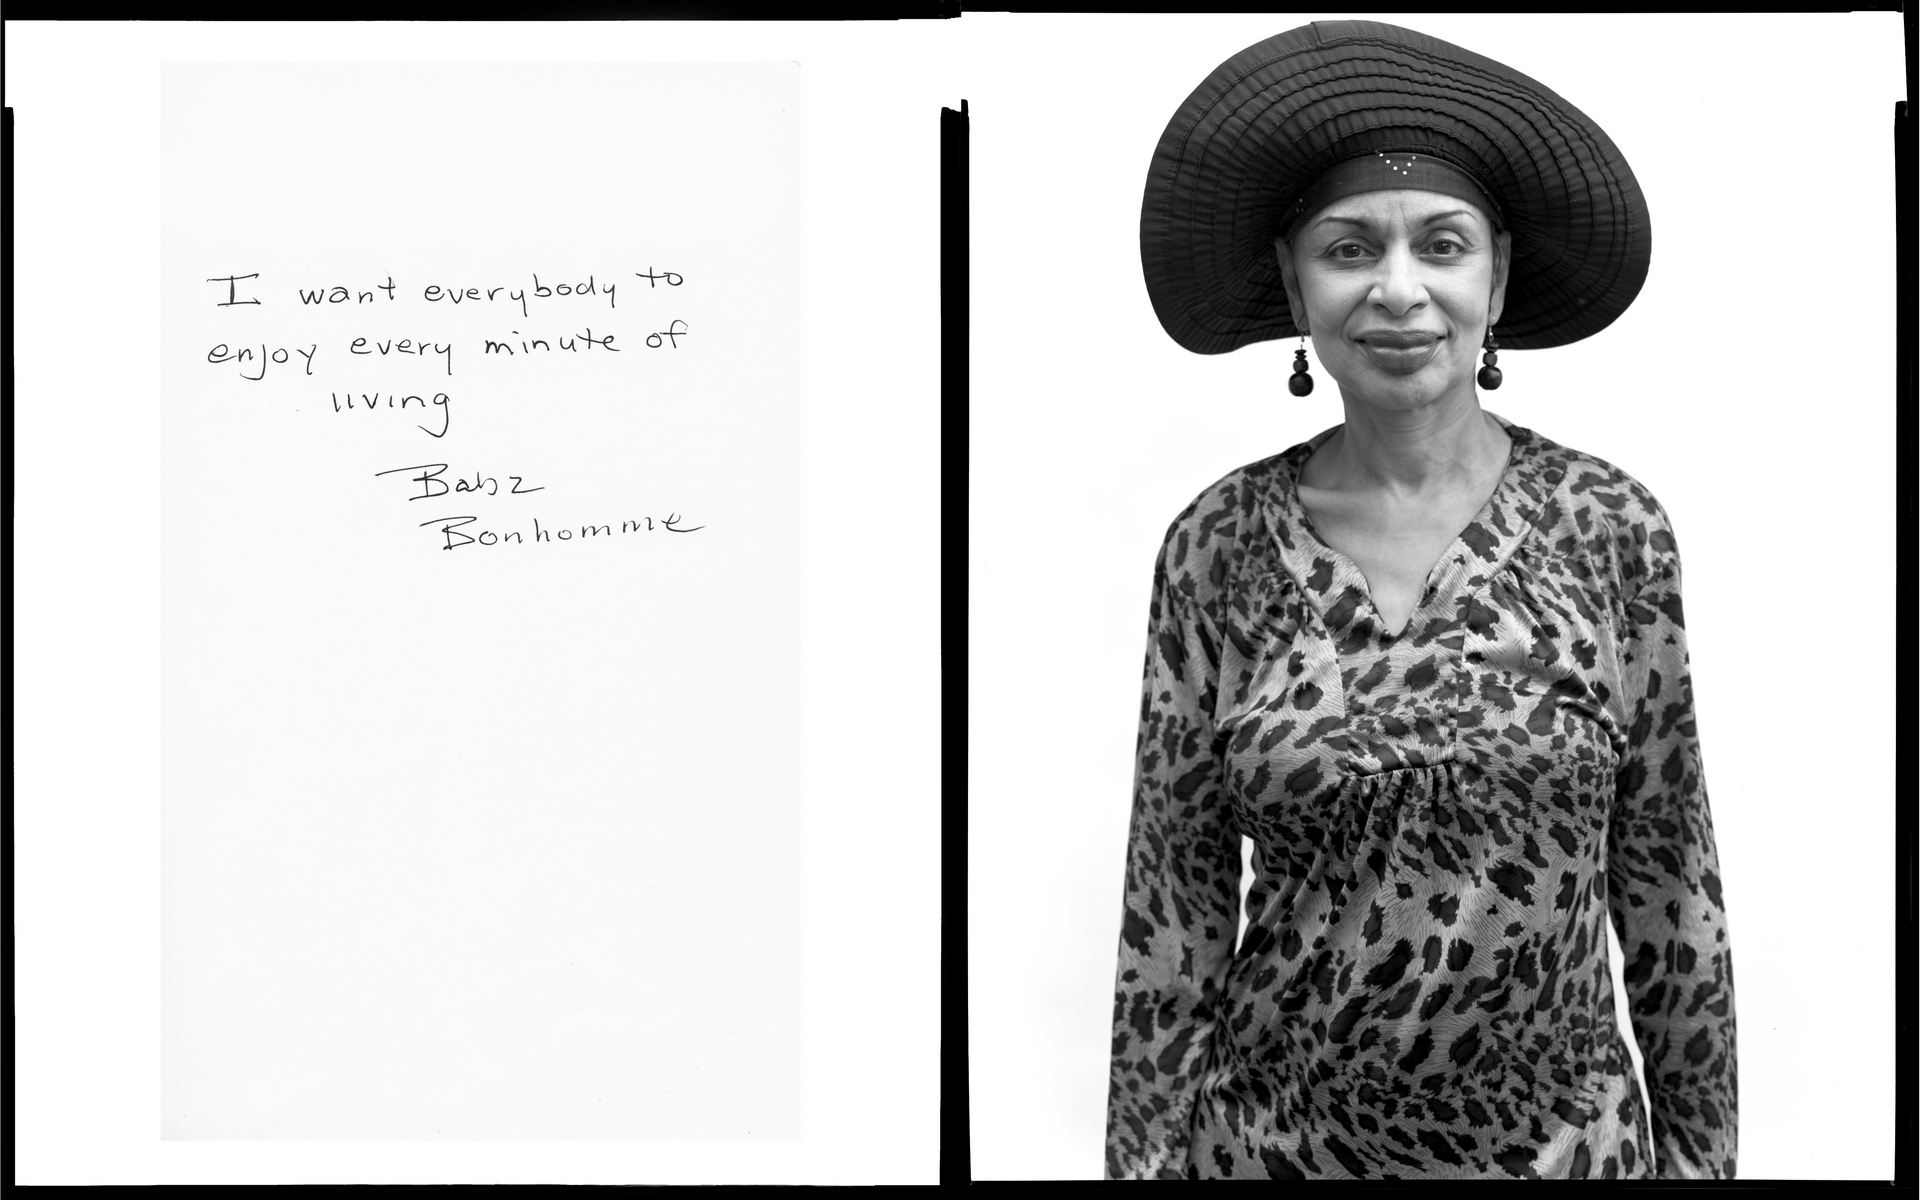 I want everybody to
enjoy every minute of
living
Babz
Bonhomme